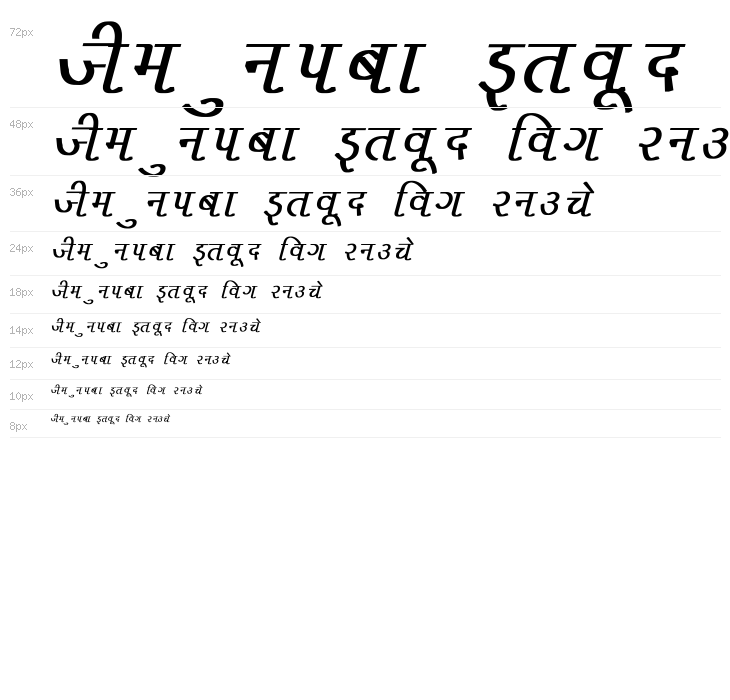 72px जीम ुनपबा इतवूद
48px जीम ुनपबा इतवूद विग रनउ
36px जीम ुनपबा इतवूद विग रनउचे
24px जीम ुनपबा इतवूद विग रनउचे
18px जीम ुनपबा इतवूद विग रनउचे
14px जीम ुनपबा इतवूद विग रनउचे
12px जीम ुनपबा इतवूद विग रनउचे
10px जीम ुनपबा इतवूद विग रनउचे
8px जीम ुनपबा इतवूद विग रनउचे